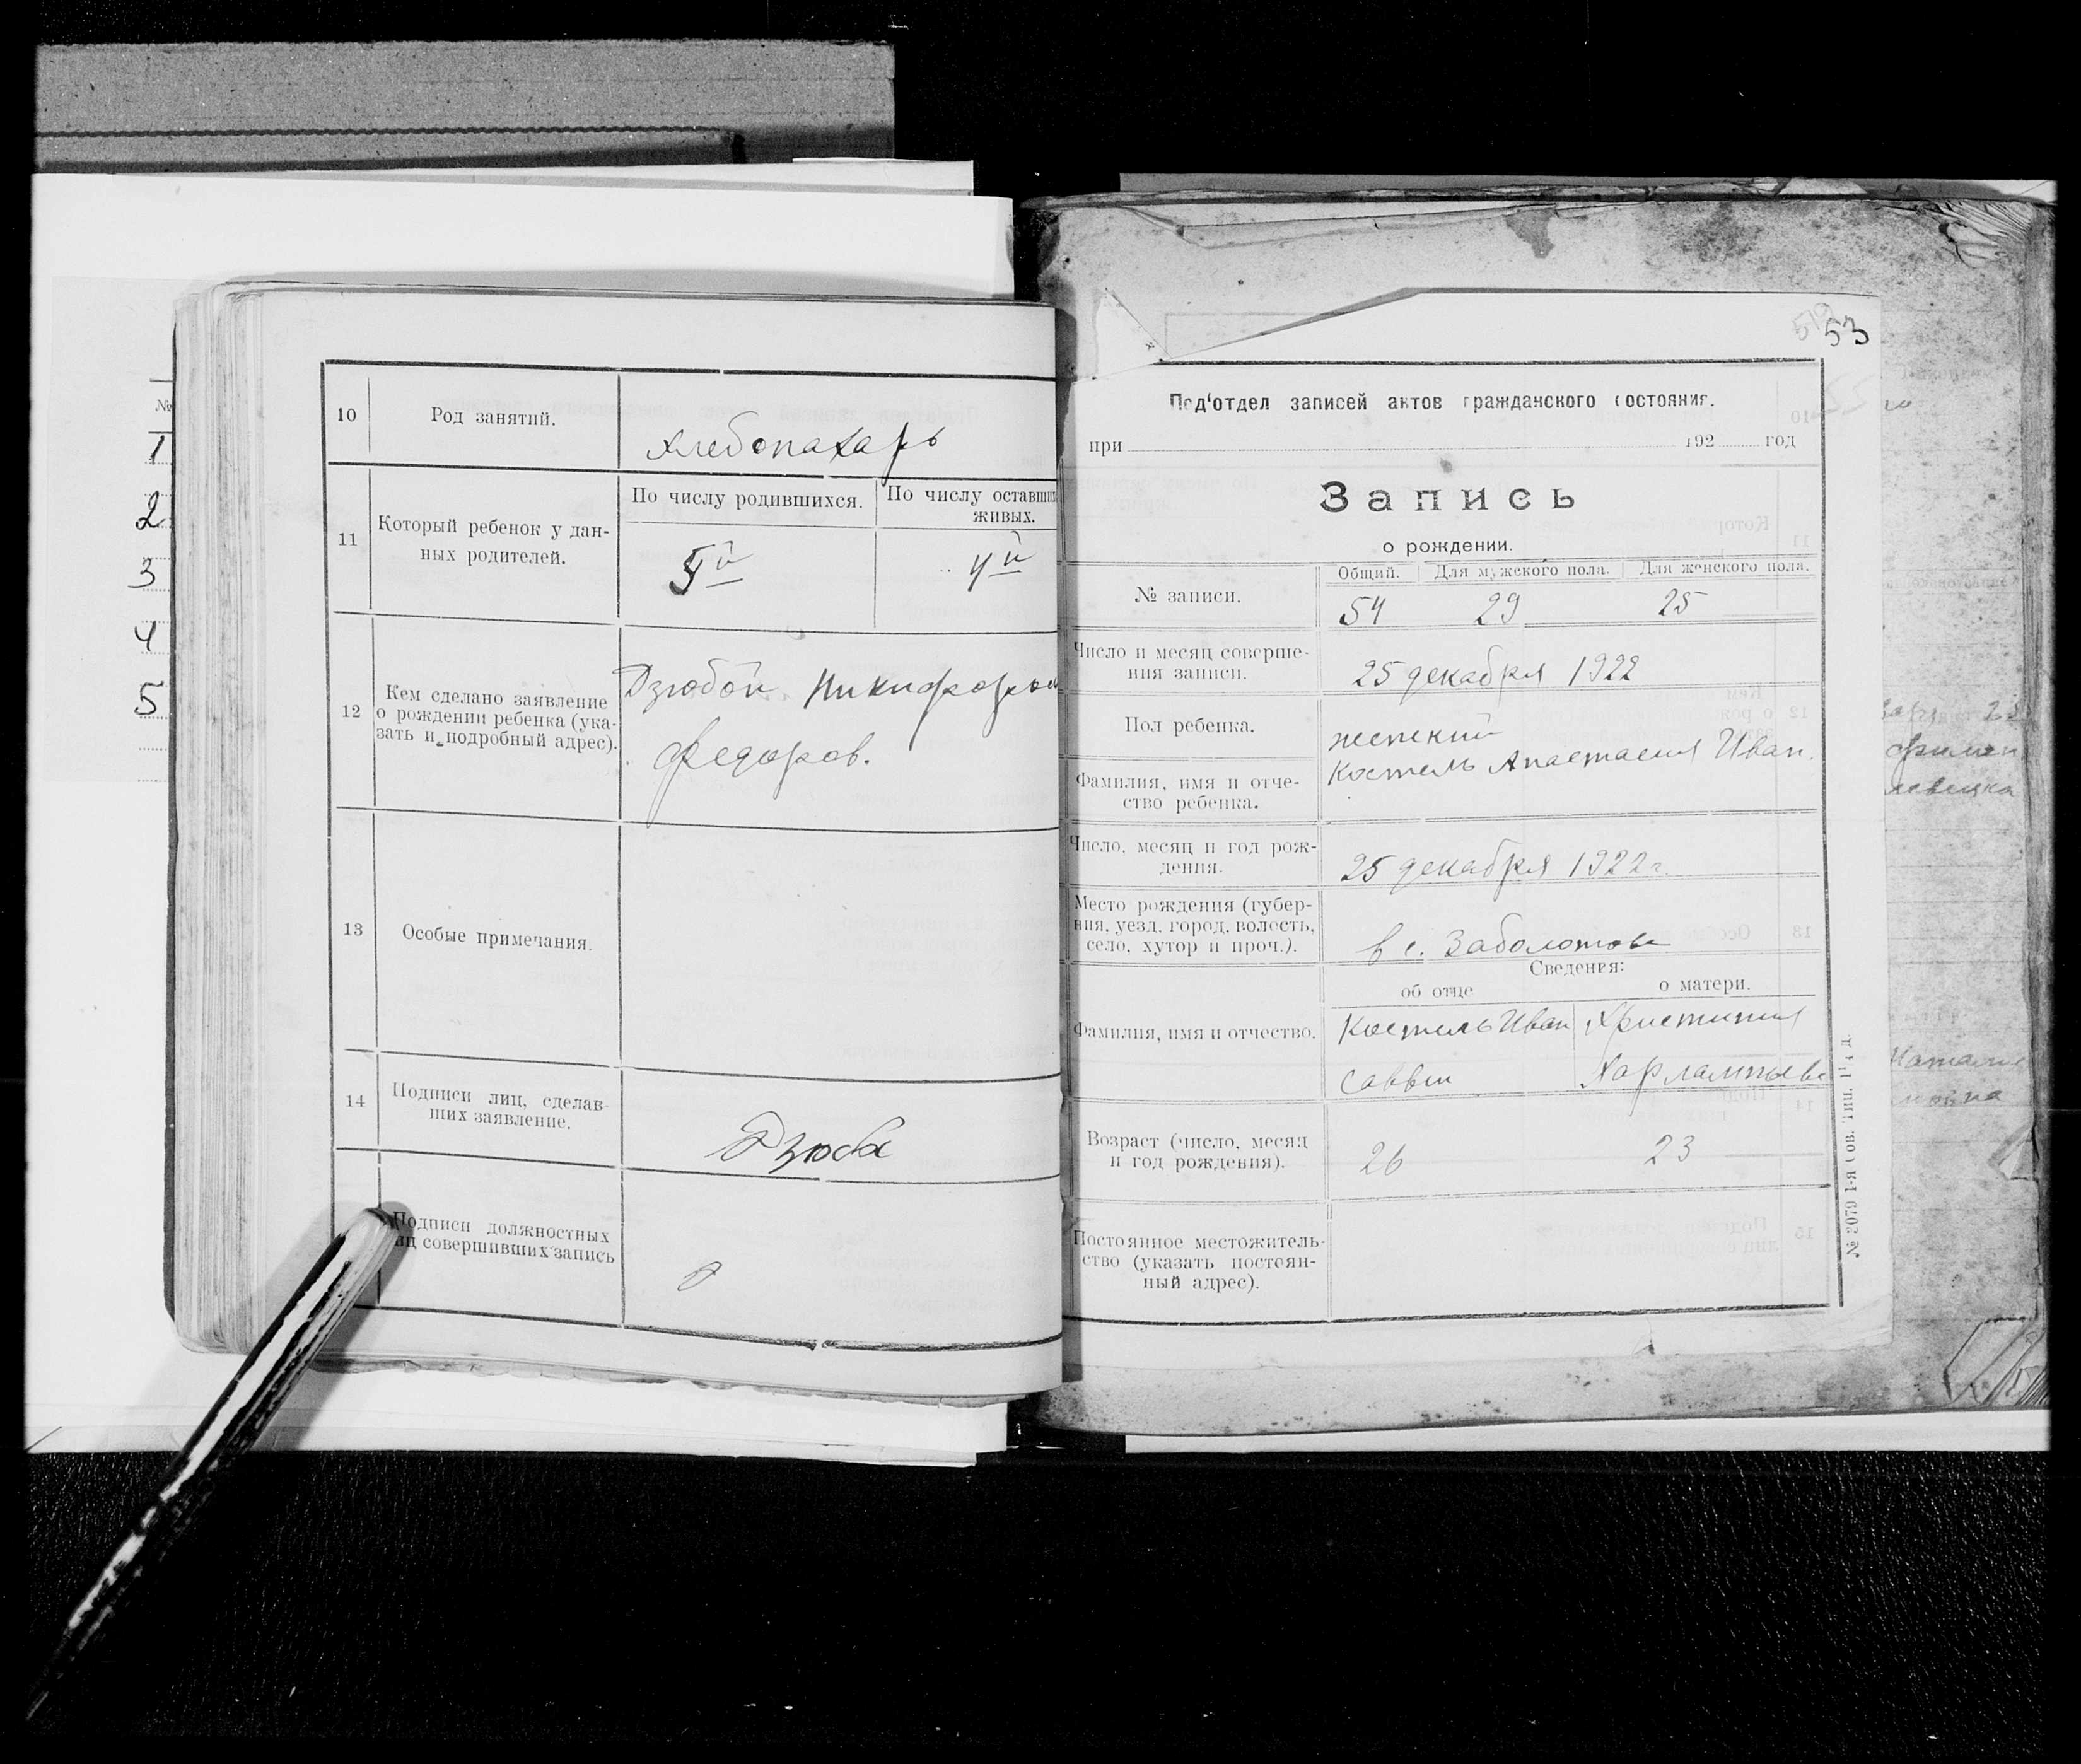 №
1
2
3
4
5
10
Род занятий.
хлебопахарь
11
Который ребенок у дан-
ных родителей.
По числу родившихся.
По числу оставши
живых.
5й
4й
12
Кем сделано заявление
о рождении ребенка (ука-
зать и подробный адрес).
Дзюбой Никифором
Федоров.
13
Особые примечания.
14
Подписи лиц, сделав-
ших заявление.
Дзюба
Подписи должностных
иц совершивших запись
53
Под'отдел записей актов гражданского состояния.
при 192 год
Запись
о рождении.
№ записи.
Общий. Для мужского пола. Для женского пола.
54 29 25
Число и месяц соверше-
ния записи.
25 декабря 1922
Пол ребенка.
женский
Фамилия, имя и отче-
ство ребенка.
Костель Анастасия Иван.
Число, месяц и год рож-
дения.
25 декабря 1922 г.
Место рождения (губер-
ния, уезд, город, волость,
село, хутор и проч.).
в с. Заболотове
Сведения:
об отце
о матери.
Фамилия, имя и отчество.
Костель Иван
Саввин
Христиния
Харлампиева
Возраст (число, месяц
и год рождения).
26
23
Постоянное местожитель-
ство (указать постоян-
ный адрес).
№ 2079 1-я Сов. Тип.